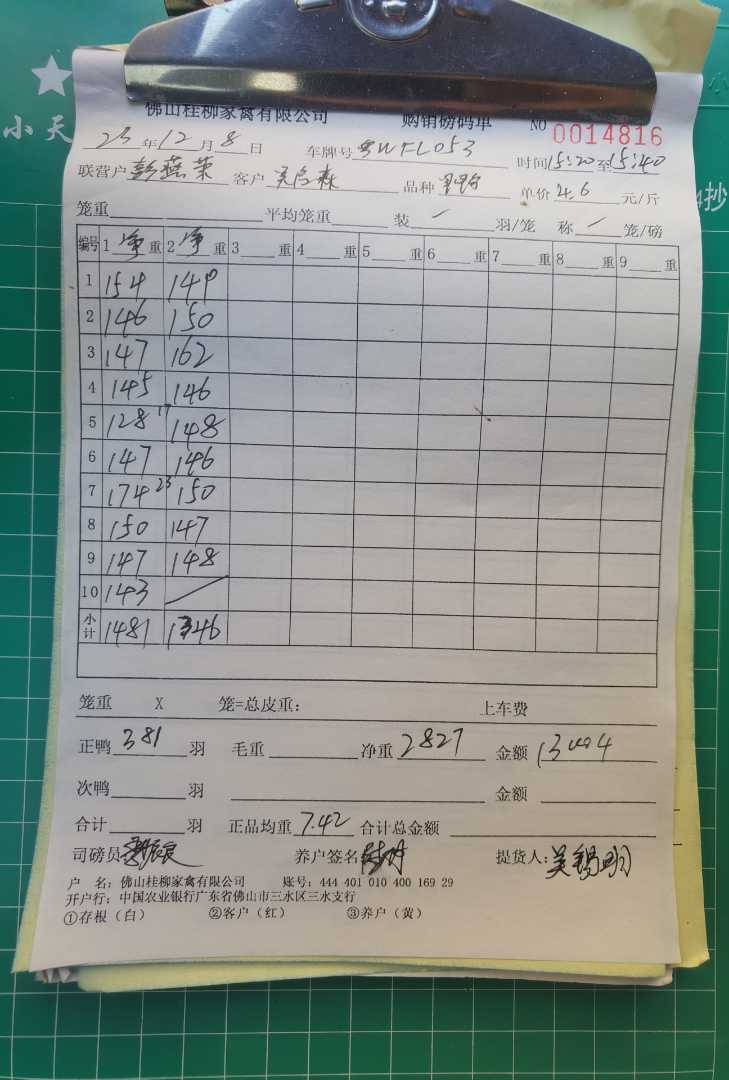 小天
佛山桂柳家禽有限公司 购销磅码单 NO 0014816
23年12月8日 车牌号 粤WFL053 时间15:20至15:40
联营户 彭燕荣 客户 品种 单价 4.6 元/斤
笼重 平均笼重 装 / 羽/笼 称 / 笼/磅
编号 1 净 重 2 净 重 3 重 4 重 5 重 6 重 7 重 8 重 9 重
1 154 149
2 146 150
3 147 162
4 145 146
5 128 17 148
6 147 146
7 174 23 150
8 150 147
9 147 148
10 143 /
小计 1481 1346
笼重 X 笼=总皮重: 上车费
正鸭 381 羽 毛重 净重 2827 金额 13004
次鸭 羽 金额
合计 羽 正品均重 7.42 合计总金额
司磅员 养户签名 提货人: 吴锡明
户 名: 佛山桂柳家禽有限公司 账号: 444 401 010 400 169 29
开户行: 中国农业银行广东省佛山市三水区三水支行
①存根（白） ②客户（红） ③养户（黄）